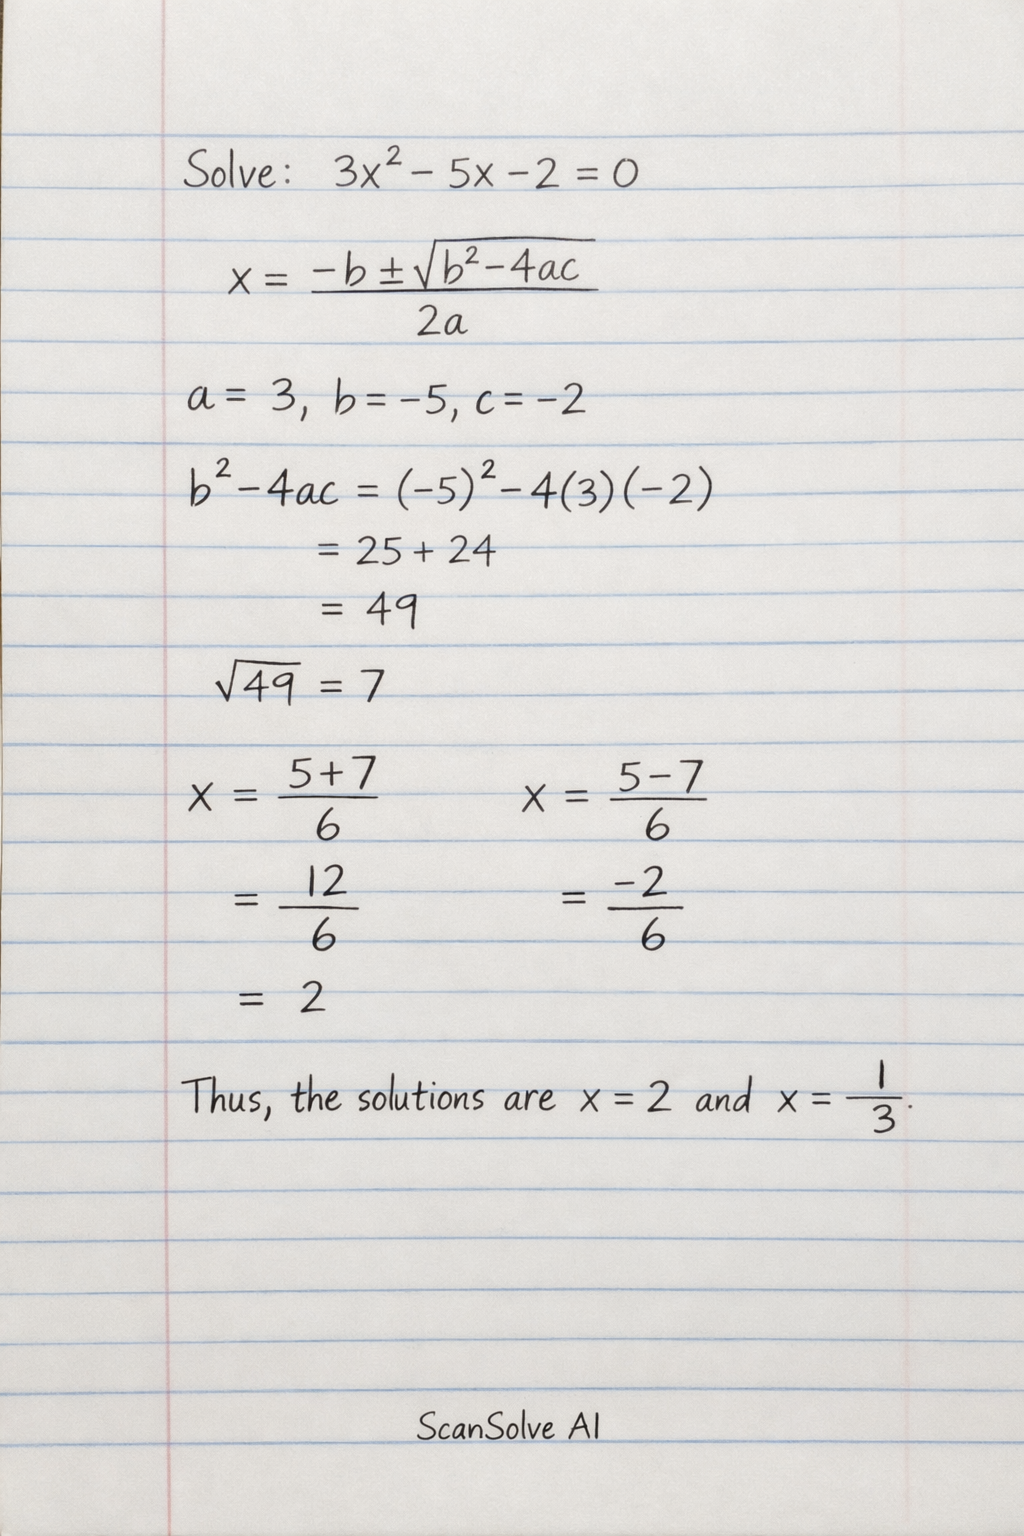 Solve: 3x² − 5x − 2 = 0
x = (−b ± √(b² − 4ac)) / 2a
a = 3, b = −5, c = −2
b² − 4ac = (−5)² − 4(3)(−2)
= 25 + 24
= 49
√49 = 7
x = (5+7)/6    x = (5−7)/6
= 12/6    = −2/6
= 2
Thus, the solutions are x = 2 and x = 1/3.
ScanSolve AI